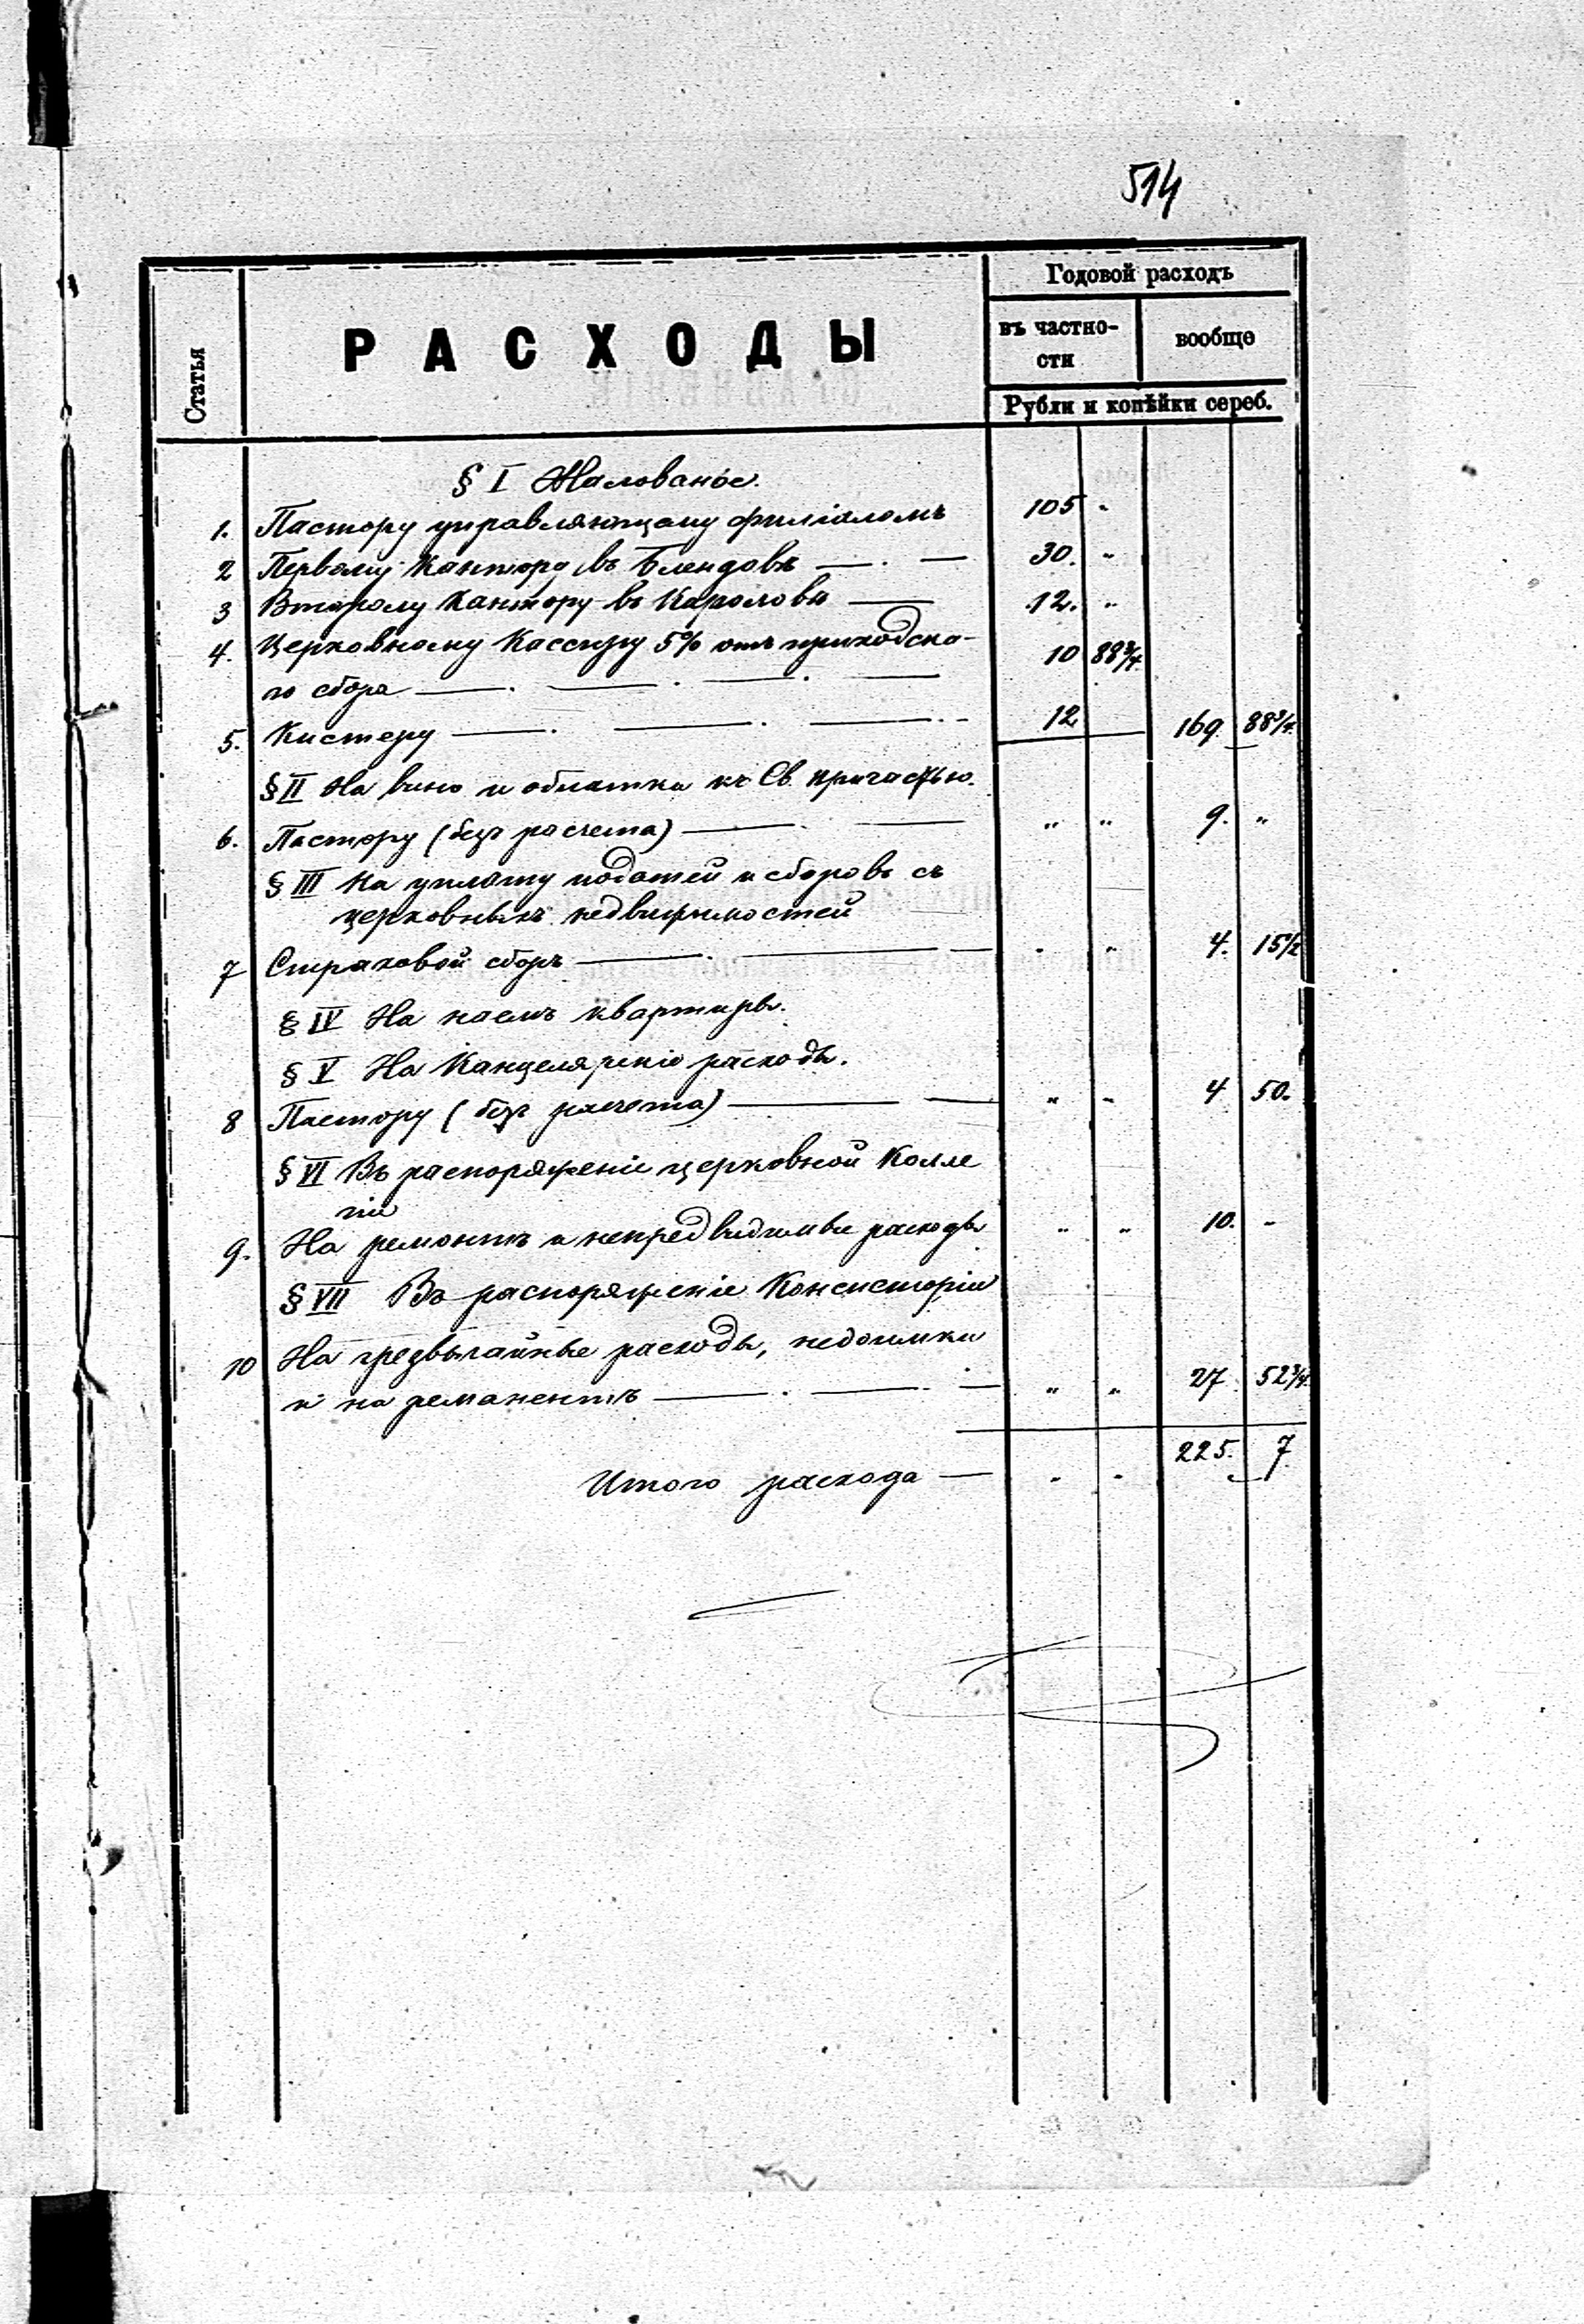 514
Статья
РАСХОДЫ
Годовой расходъ
въ частно-
сти
вообще
Рубли и копѣйки сереб.
§ I Жалованье.
1. Пастору управляющему филіаломъ 105 "
2 Первому Кантору въ Блендовѣ — . — 30. "
3 Второму Кантору въ Каролови — 12. "
4. Церковному Кассиру 5% отъ приходска-
го сбора — . — . — . — 10 88 3/4.
5. Кистеру — . — . — . - 12 169. 88 3/4.
§ II На вино и облатки къ Св. причастью.
6. Пастору (безъ расчета) — . — " " 9. "
§ III На уплату податей и сборовъ съ
церковныхъ недвижимостей
7 Страховой сборъ — . — " " 4. 15 1/2
§ IV На наемъ квартиры.
§ V На Канцелярскіе расходы.
8 Пастору (безъ расчета) — — " " 4 50.
§ VI Въ распоряженіе церковной Колле
гіи
9. На ремонтъ и непредвидимые расходы " " 10. "
§ VII Въ распоряженіе Консисторіи
10 На чрезвычайные расходы, недоимки
и на ремонентъ — . — . — " " 27 52 3/4.
Итого расхода — " " 225. 7